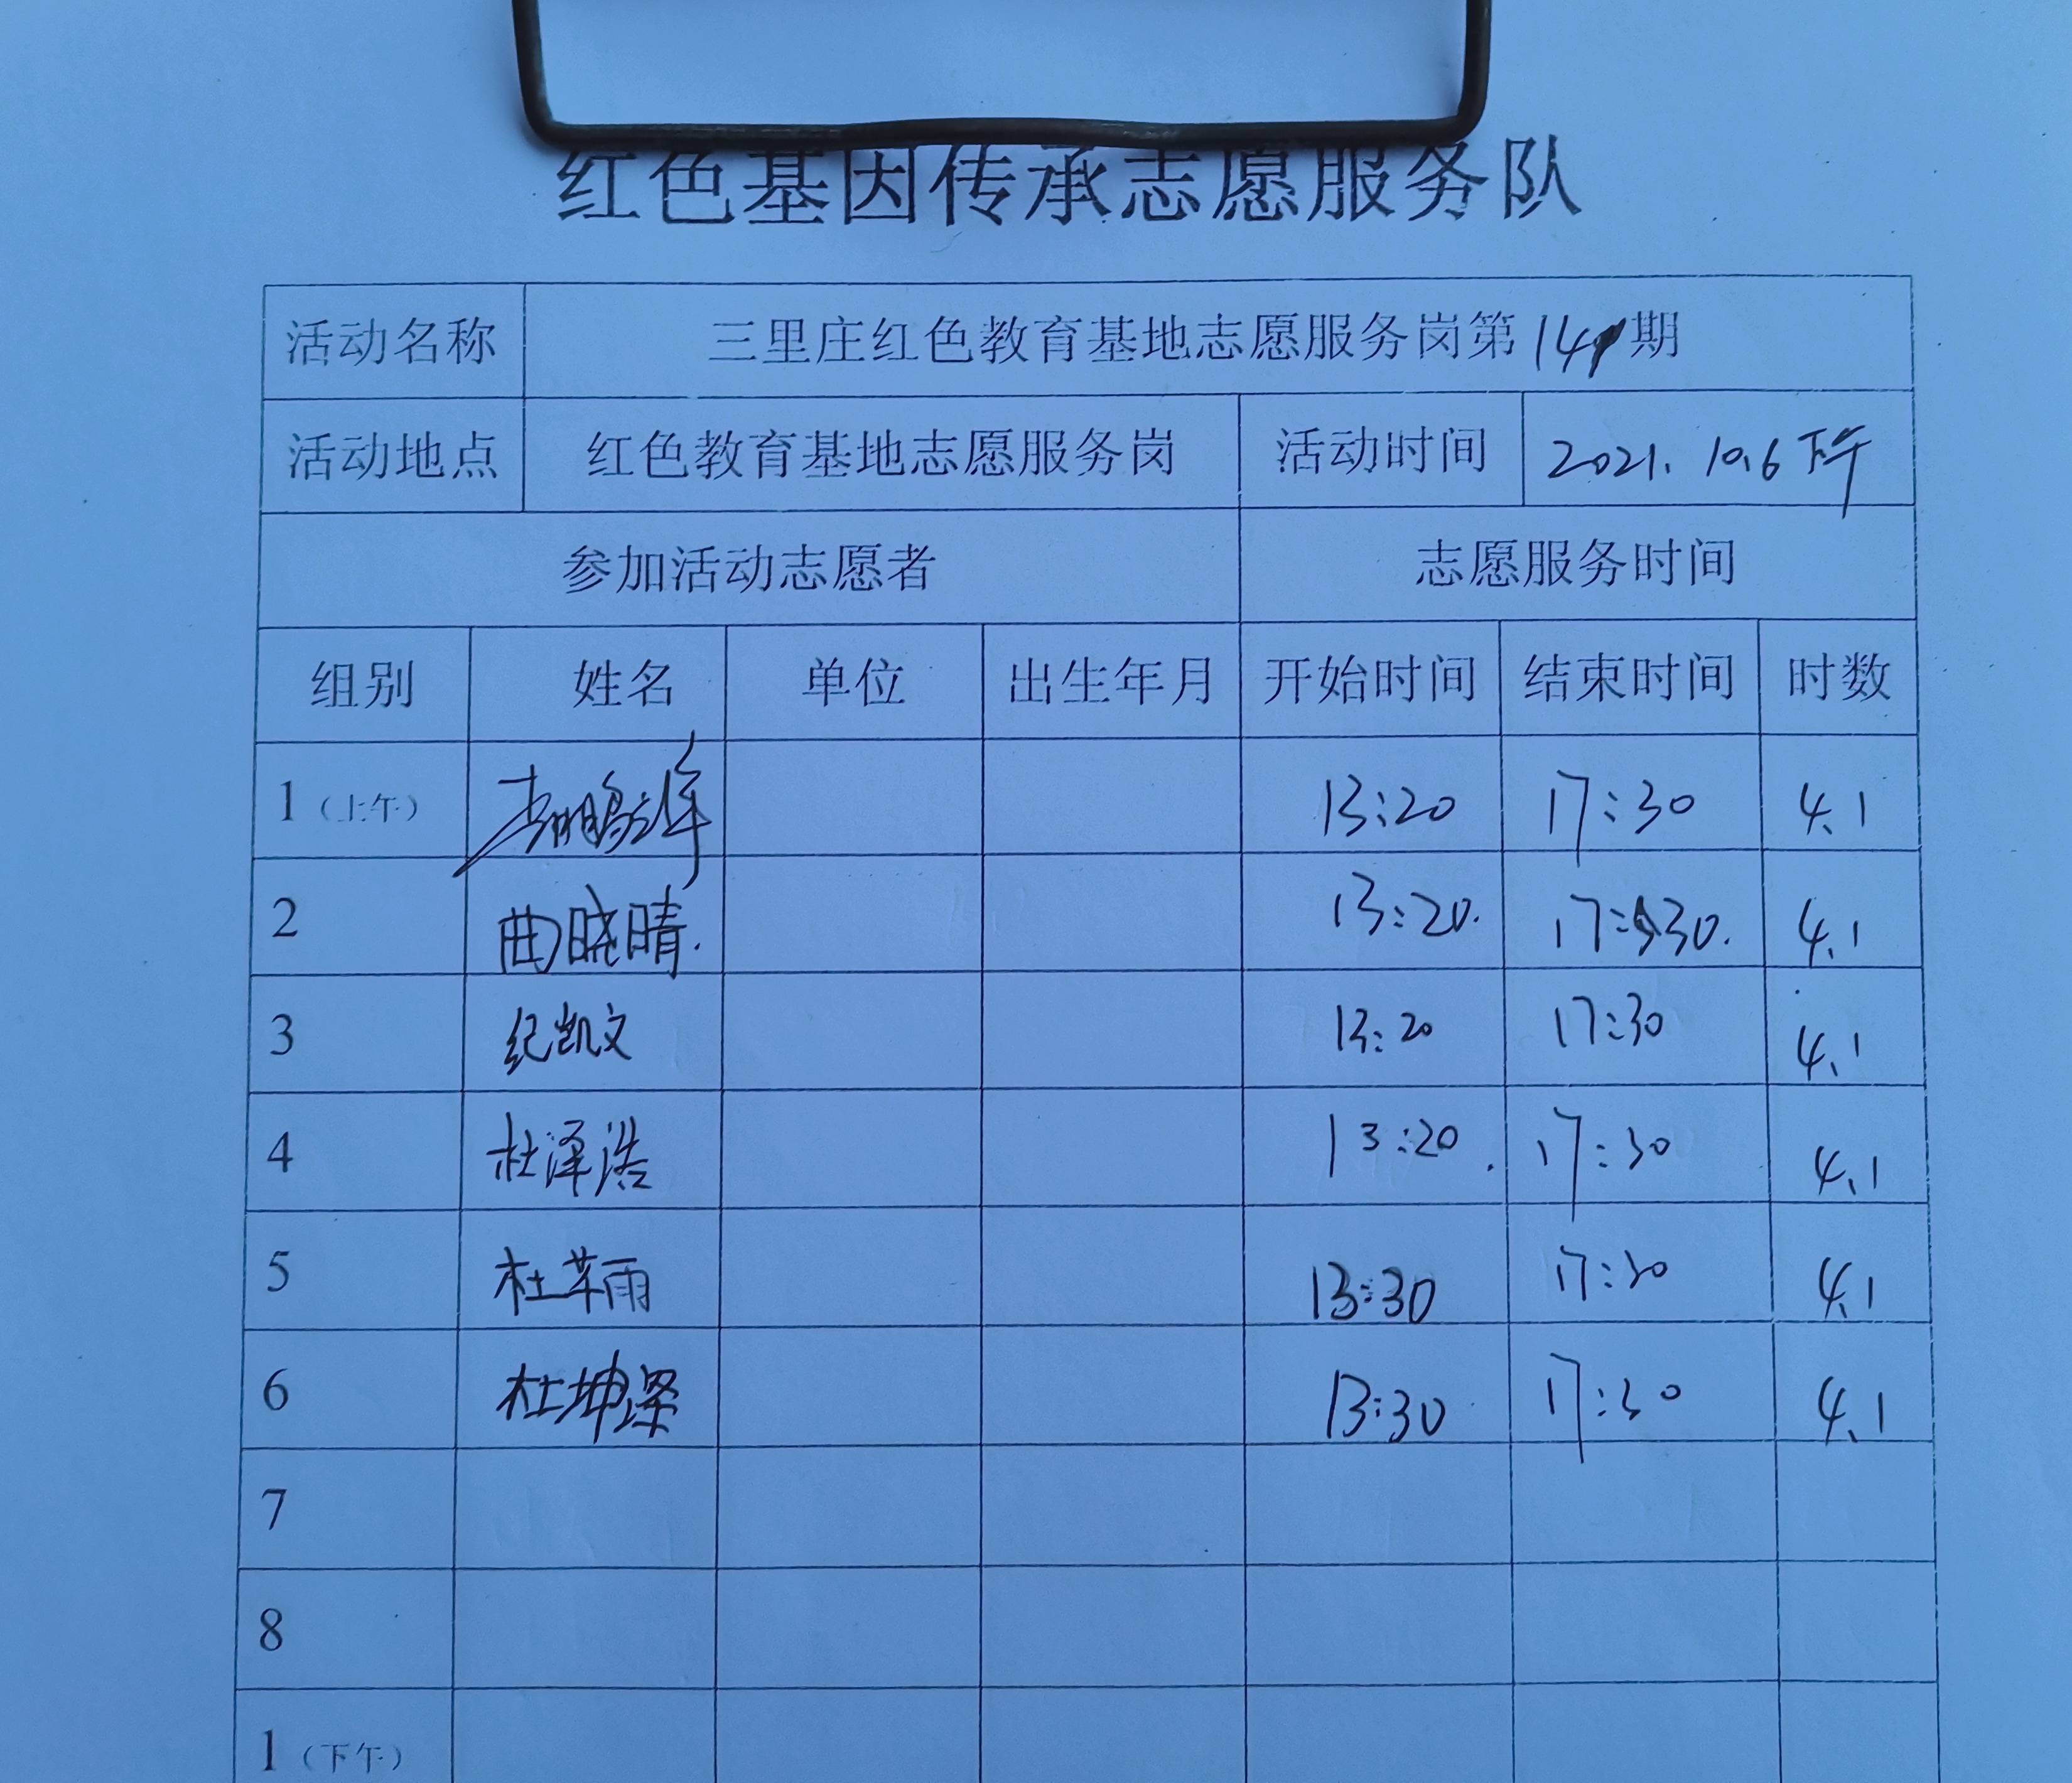 红色基因传承志愿服务队
活动名称 三里庄红色教育基地志愿服务岗第141期
活动地点 红色教育基地志愿服务岗 活动时间 2021.10.6下午
参加活动志愿者 志愿服务时间
组别 姓名 单位 出生年月 开始时间 结束时间 时数
1（上午） 13:20 17:30 4.1
2 曲晓晴. 13:20. 17:30. 4.1
3 纪凯文 13:20 17:30 4.1
4 杜泽浩 13:20. 17:30 4.1
5 杜芊雨 13:30 17:30 4.1
6 杜坤 13:30 17:30 4.1
7
8
1（下午）